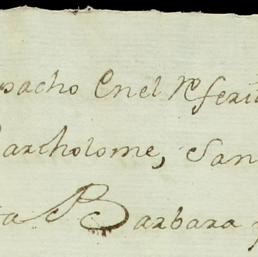 pacho Enel Rferi
Bartholome, San
ta Barbara